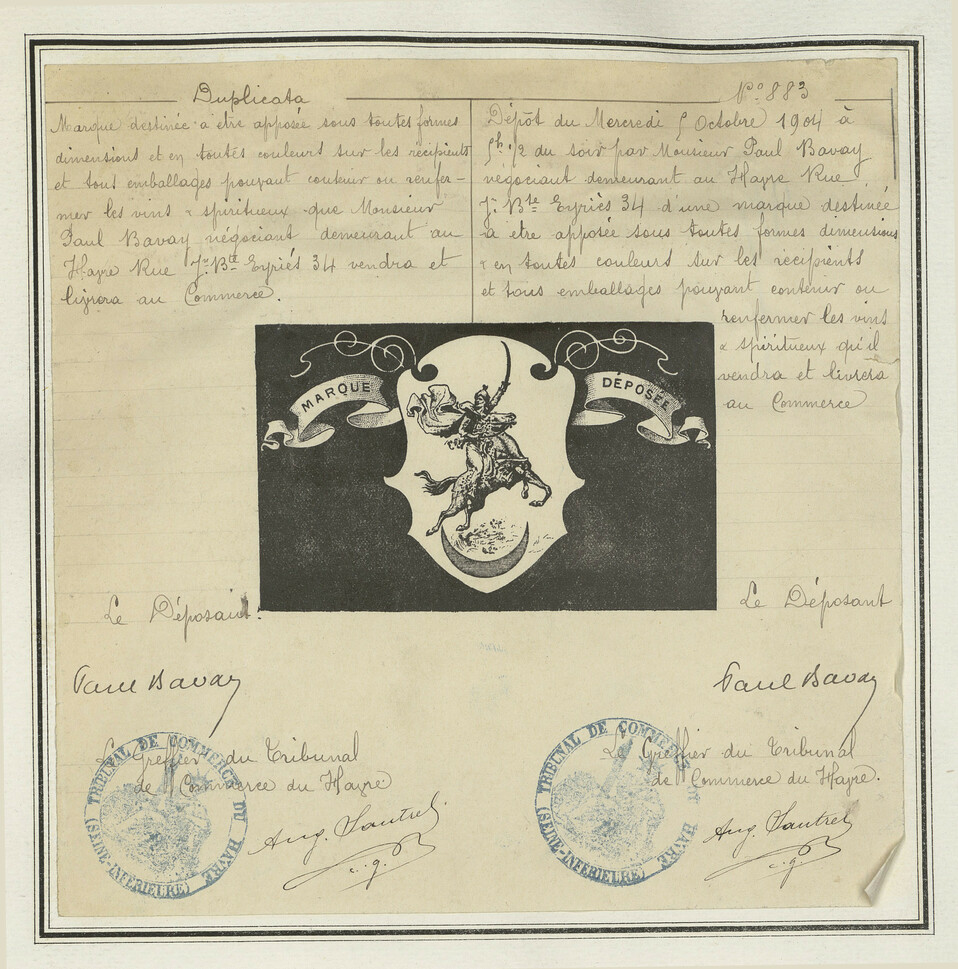 Duplicata
Marque destinée a etre apposée sous toutes formes
dimensions et en toutes couleurs sur les récipients
et tous emballages pouvant contenir ou renfer-
mer les vins & spiritueux que Monsieur
Paul Bavay négociant demeurant au
Havre Rue J. Bte Eyriés 34 vendra et
livrera au Commerce.
No 883
Dépôt du Mercredi 5 Octobre 1904 à
5h 1/2 du soir par Monsieur Paul Bavay
négociant demeurant au Havre Rue
J. Bte Eyriés 34 d'une marque destinée
à etre apposée sous toutes formes dimensions
& en toutes couleurs sur les récipients
et tous emballages pouvant contenir ou
renfermer les vins
& spiritueux qu'il
vendra et livrera
au Commerce
MARQUE
DÉPOSÉE
Le Déposant
Paul Bavay
Le Greffier du Tribunal
de Commerce du Havre
Aug. Sautrel
TRIBUNAL DE COMMERCE DU HAVRE
(SEINE-INFÉRIEURE)
Le Déposant
Paul Bavay
Le Greffier du Tribunal
de Commerce du Havre.
Aug. Sautrel
TRIBUNAL DE COMMERCE DU HAVRE
(SEINE-INFÉRIEURE)